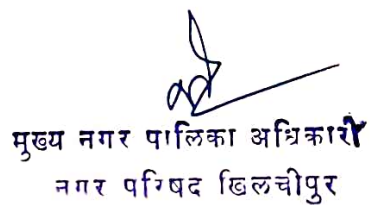 मुख्य नगर पालिका अधिकारी
नगर परिषद खिलचीपुर